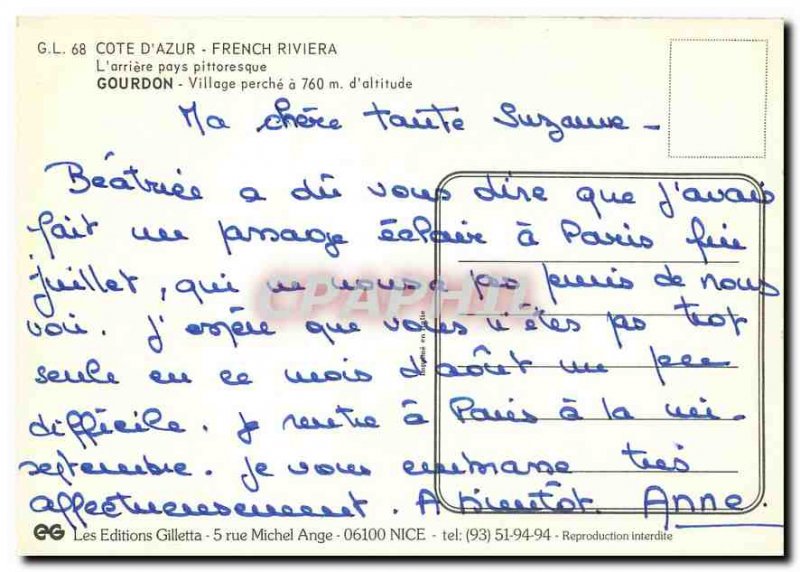 G.L. 68 COTE D'AZUR - FRENCH RIVIERA
L'arrière pays pittoresque
GOURDON - Village perché à 760 m. d'altitude
Ma chère tante Suzanne -
Béatrice a dû vous dire que j'avais
fait un passage éclair à Paris fin
juillet, qui ne nous a pas permis de nous
voir. J'espère que vous n'êtes pas trop
seule en ce mois d'août un peu
difficile. Je rentre à Paris à la mi-
septembre. Je vous embrasse très
affectueusement. A bientôt. Anne.
Imprimé en
CPAPHIL
Les Editions Gilletta - 5 rue Michel Ange - 06100 NICE - tel: (93) 51-94-94 - Reproduction interdite